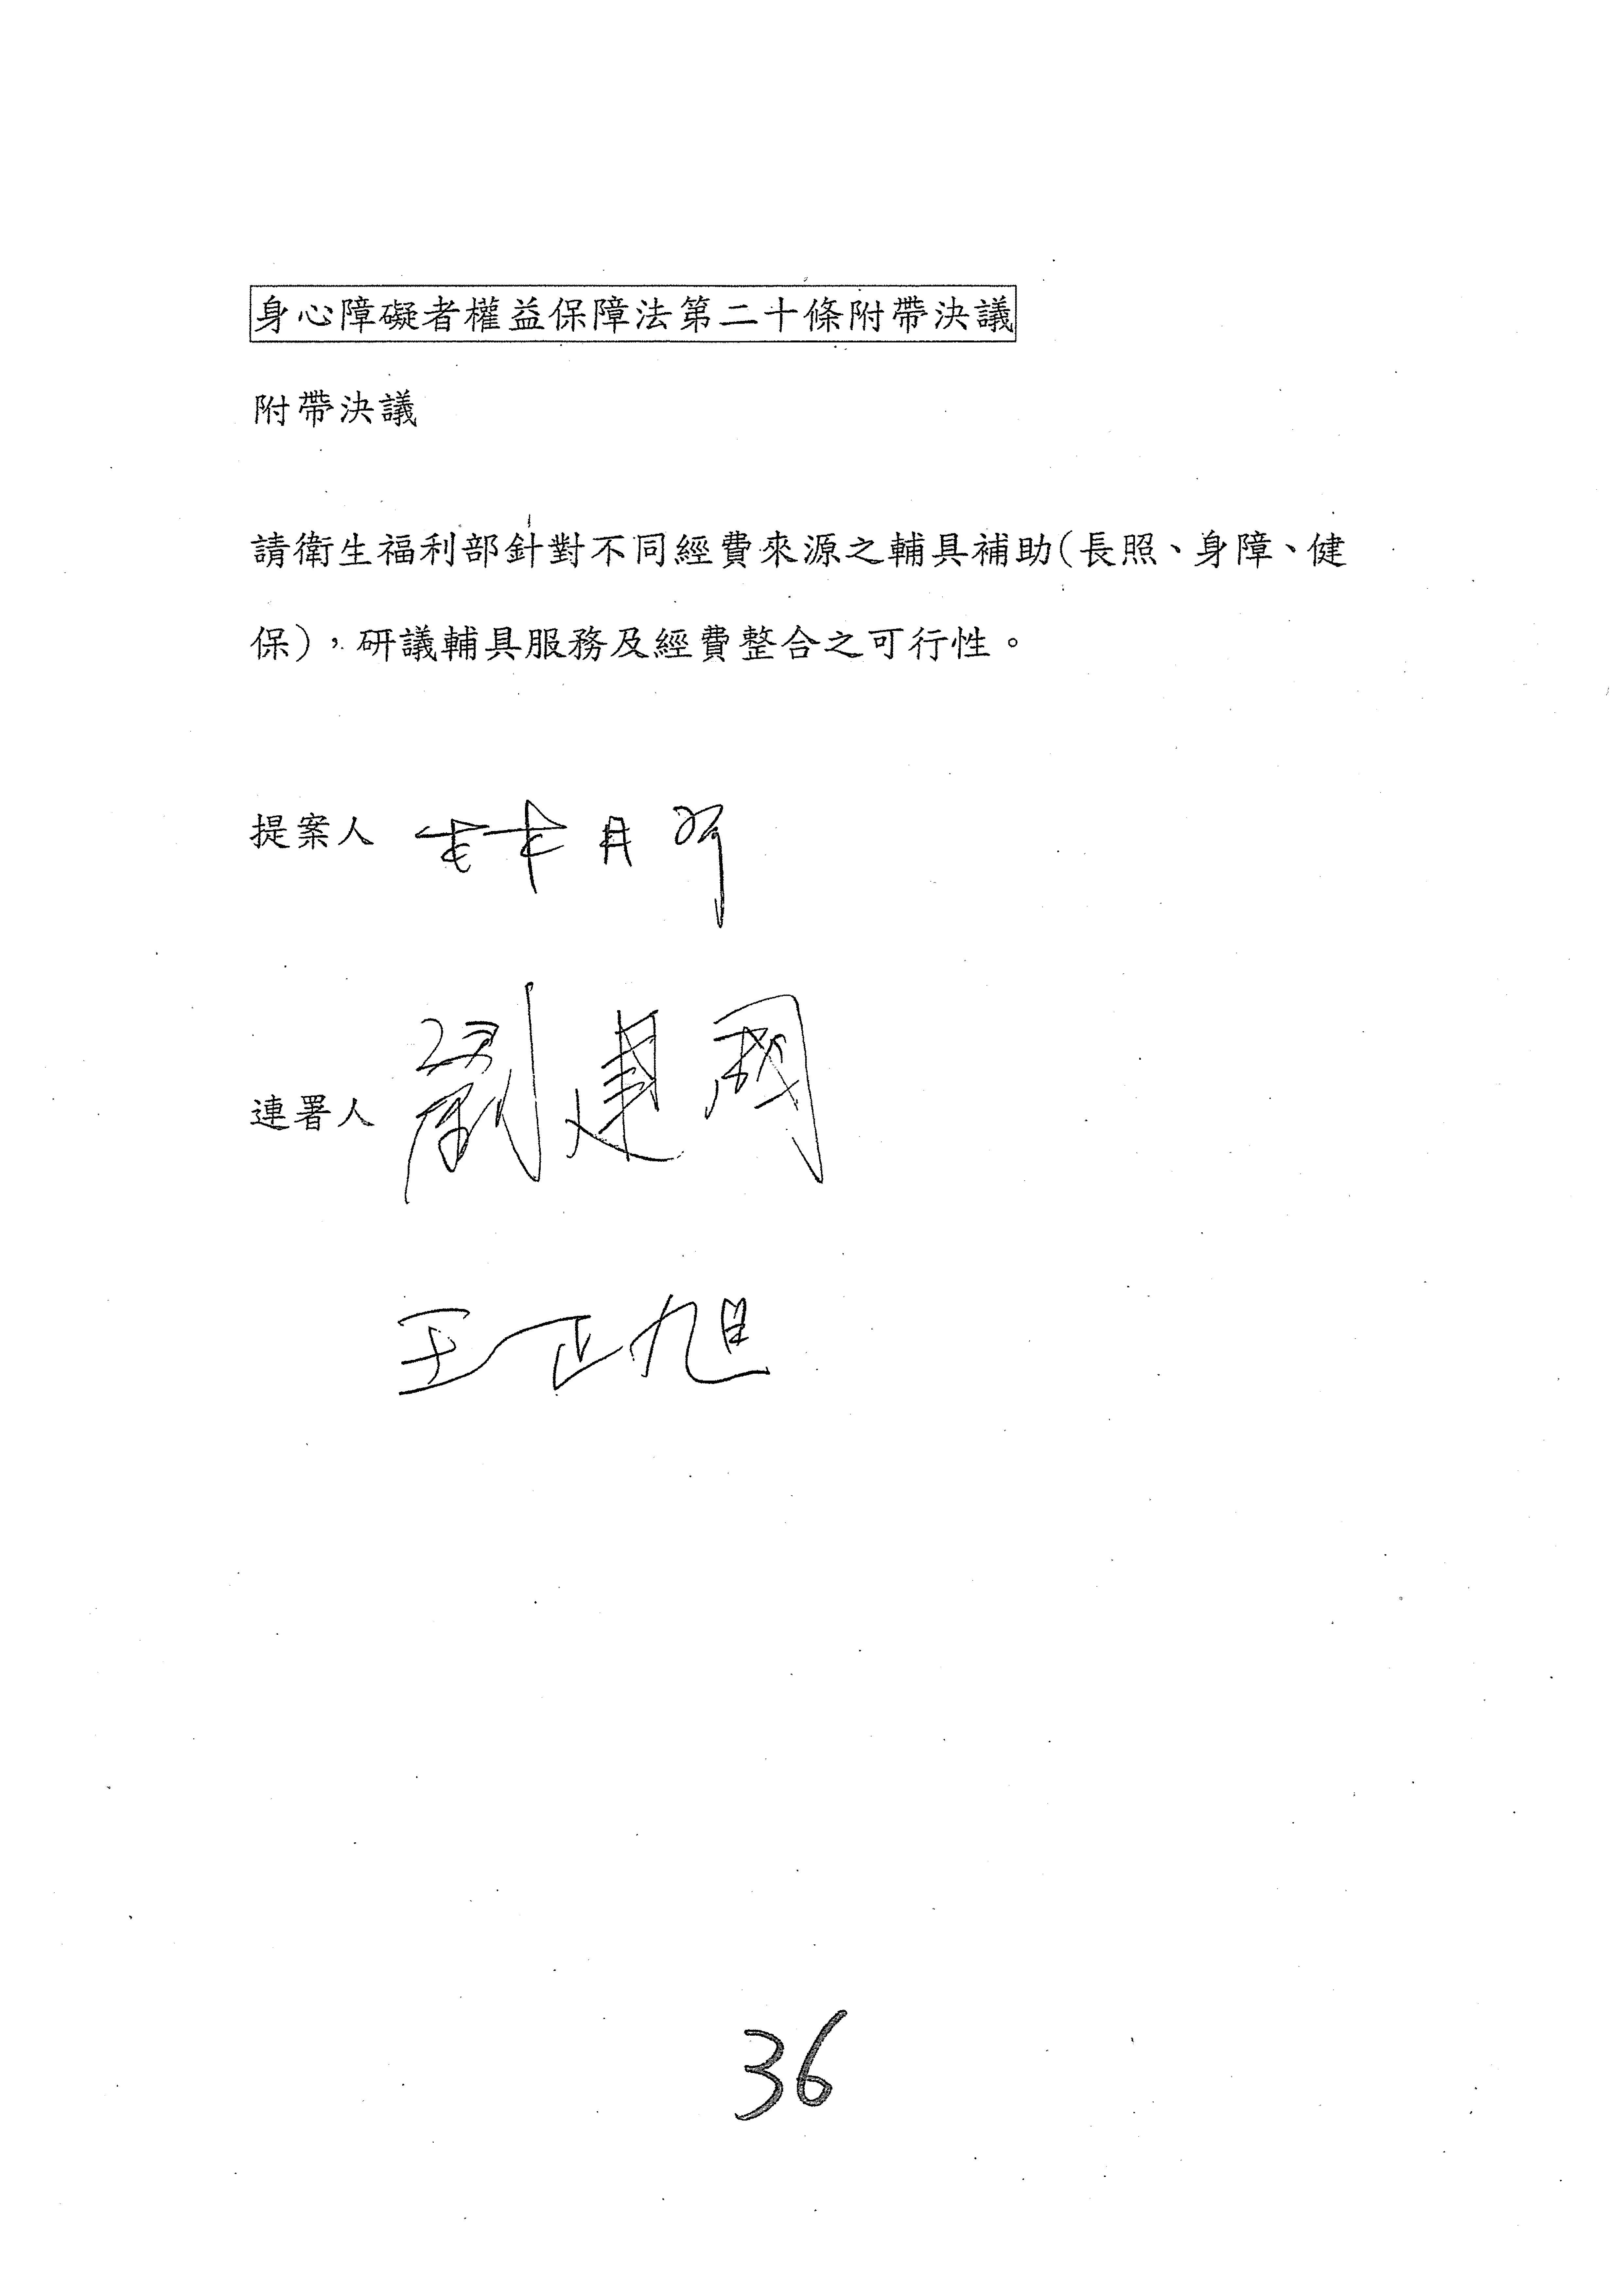 身心障礙者權益保障法第二十條附帶決議
附帶決議
請衛生福利部針對不同經費來源之輔具補助(長照、身障、健
保),研議輔具服務及經費整合之可行性。
提案人 林月琴
連署人 劉建國
王正旭
36